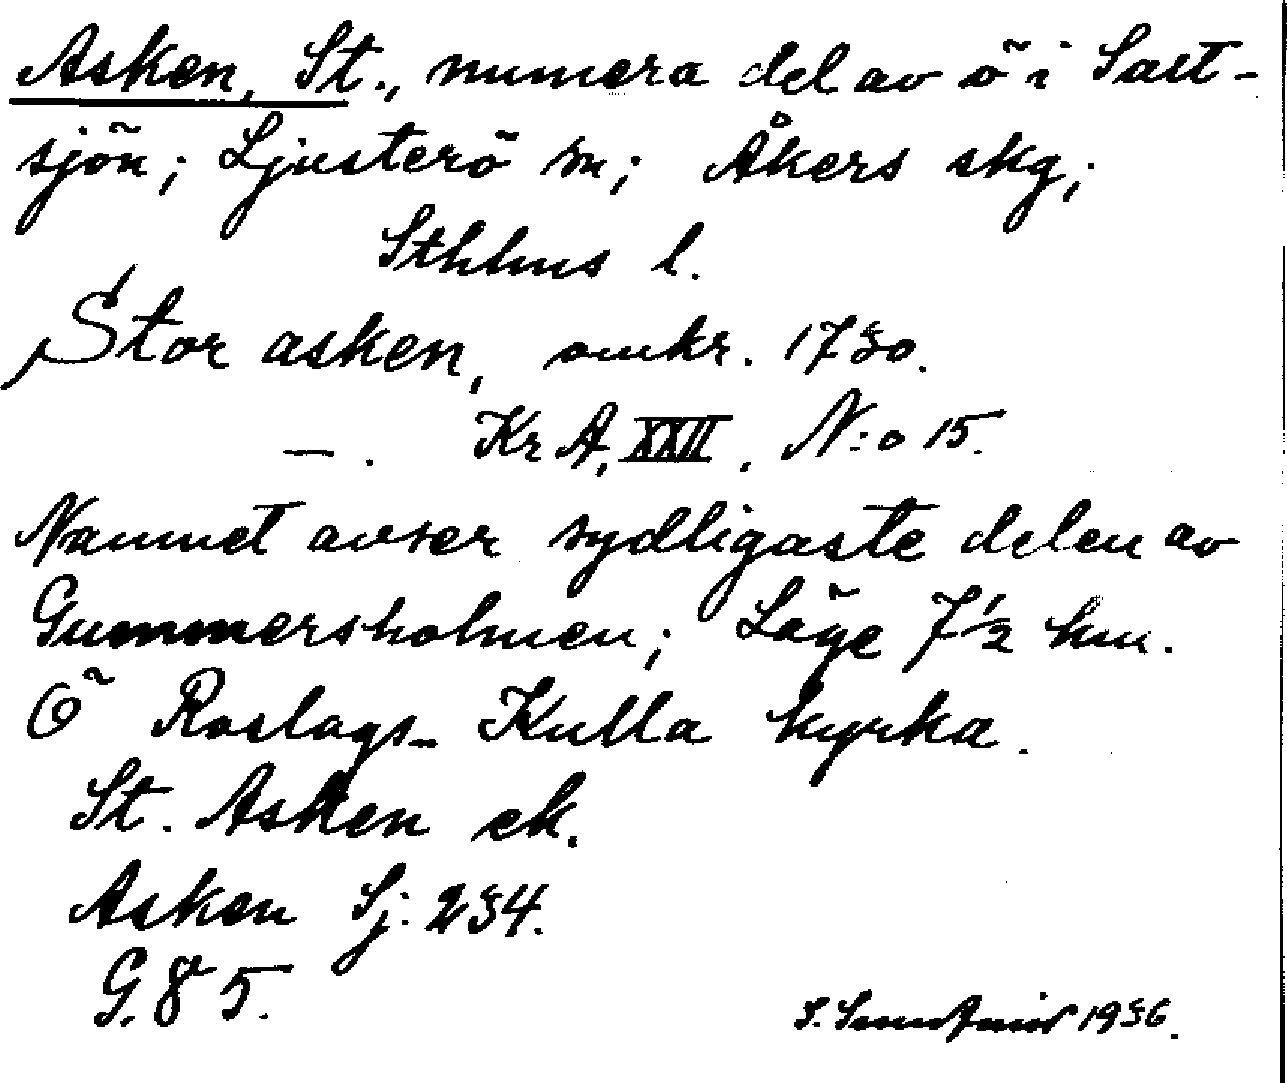 Asken, St., numera del av ö i Salt-
sjön; Ljusterö sn; Åkers skg;
Sthlms l.
Stor asken, omkr. 1730.
—. KrA, XXII, N:o 15.
Namnet avser sydligaste delen av
Gummersholmen; Läge 7 1/2 km.
Ö Roslags-Kulla kyrka.
St. Asken ek.
Asken Sj. 234.
G. 85.
1936.